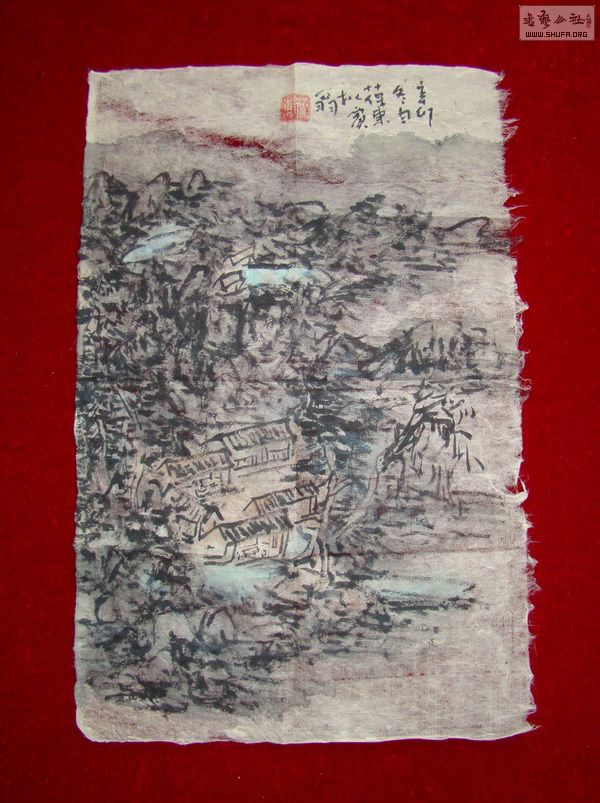 書藝公社
WWW.SHUFA.ORG
辛卯
冬
東
拟賓
翁